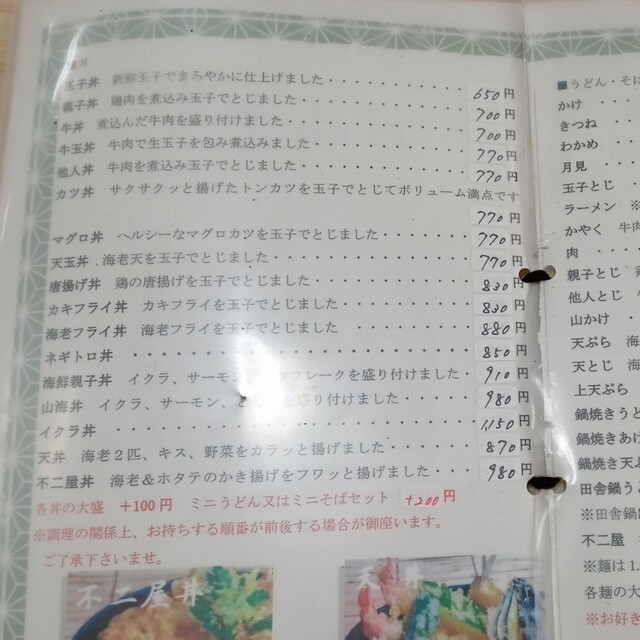 丼
玉子丼 新鮮玉子でまろやかに仕上げました・・・・・・・・・・・650円
親子丼 鶏肉を煮込み玉子でとじました・・・・・・・・・・・・・700円
牛丼 煮込んだ牛肉を盛り付けました・・・・・・・・・・・・・700円
牛玉丼 牛肉で生玉子を包み煮込みました・・・・・・・・・・・・770円
他人丼 牛肉を煮込み玉子でとじました・・・・・・・・・・・・・770円
カツ丼 サクサクッと揚げたトンカツを玉子でとじてボリューム満点です
770円
マグロ丼 ヘルシーなマグロカツを玉子でとじました・・・・・・・770円
天玉丼 海老天を玉子でとじました・・・・・・・・・・・・・・・770円
唐揚げ丼 鶏の唐揚げを玉子でとじました・・・・・・・・・・・・830円
カキフライ丼 カキフライを玉子でとじました・・・・・・・・・・830円
海老フライ丼 海老フライを玉子でとじました・・・・・・・・・・880円
ネギトロ丼 ・・・・・・・・・・・・・・・・・・・・・・・・850円
海鮮親子丼 イクラ、サーモン フレークを盛り付けました・910円
山海丼 イクラ、サーモン、と 盛り付けました・・・・・980円
イクラ丼 ・・・・・・・・・・・・・・・・・・・・・・・・・1150円
天丼 海老2匹、キス、野菜をカラッと揚げました・・・・・・・870円
不二屋丼 海老＆ホタテのかき揚げをフワッと揚げました・・・・・980円
各丼の大盛 +100円 ミニうどん又はミニそばセット +200円
※調理の関係上、お持ちする順番が前後する場合が御座います。
ご了承下さいませ。
不二屋丼
天丼
■うどん・そば
かけ
きつね
わかめ
月見
玉子とじ
ラーメン ※
かやく 牛肉
肉
親子とじ 鶏
他人とじ 牛
山かけ
天ぷら 海
天とじ 海
上天ぷら
鍋焼きうど
鍋焼きあげ
鍋焼き天ぷ
田舎鍋う
※田舎鍋
不二屋
※麺は1.
各麺の大
※お好き